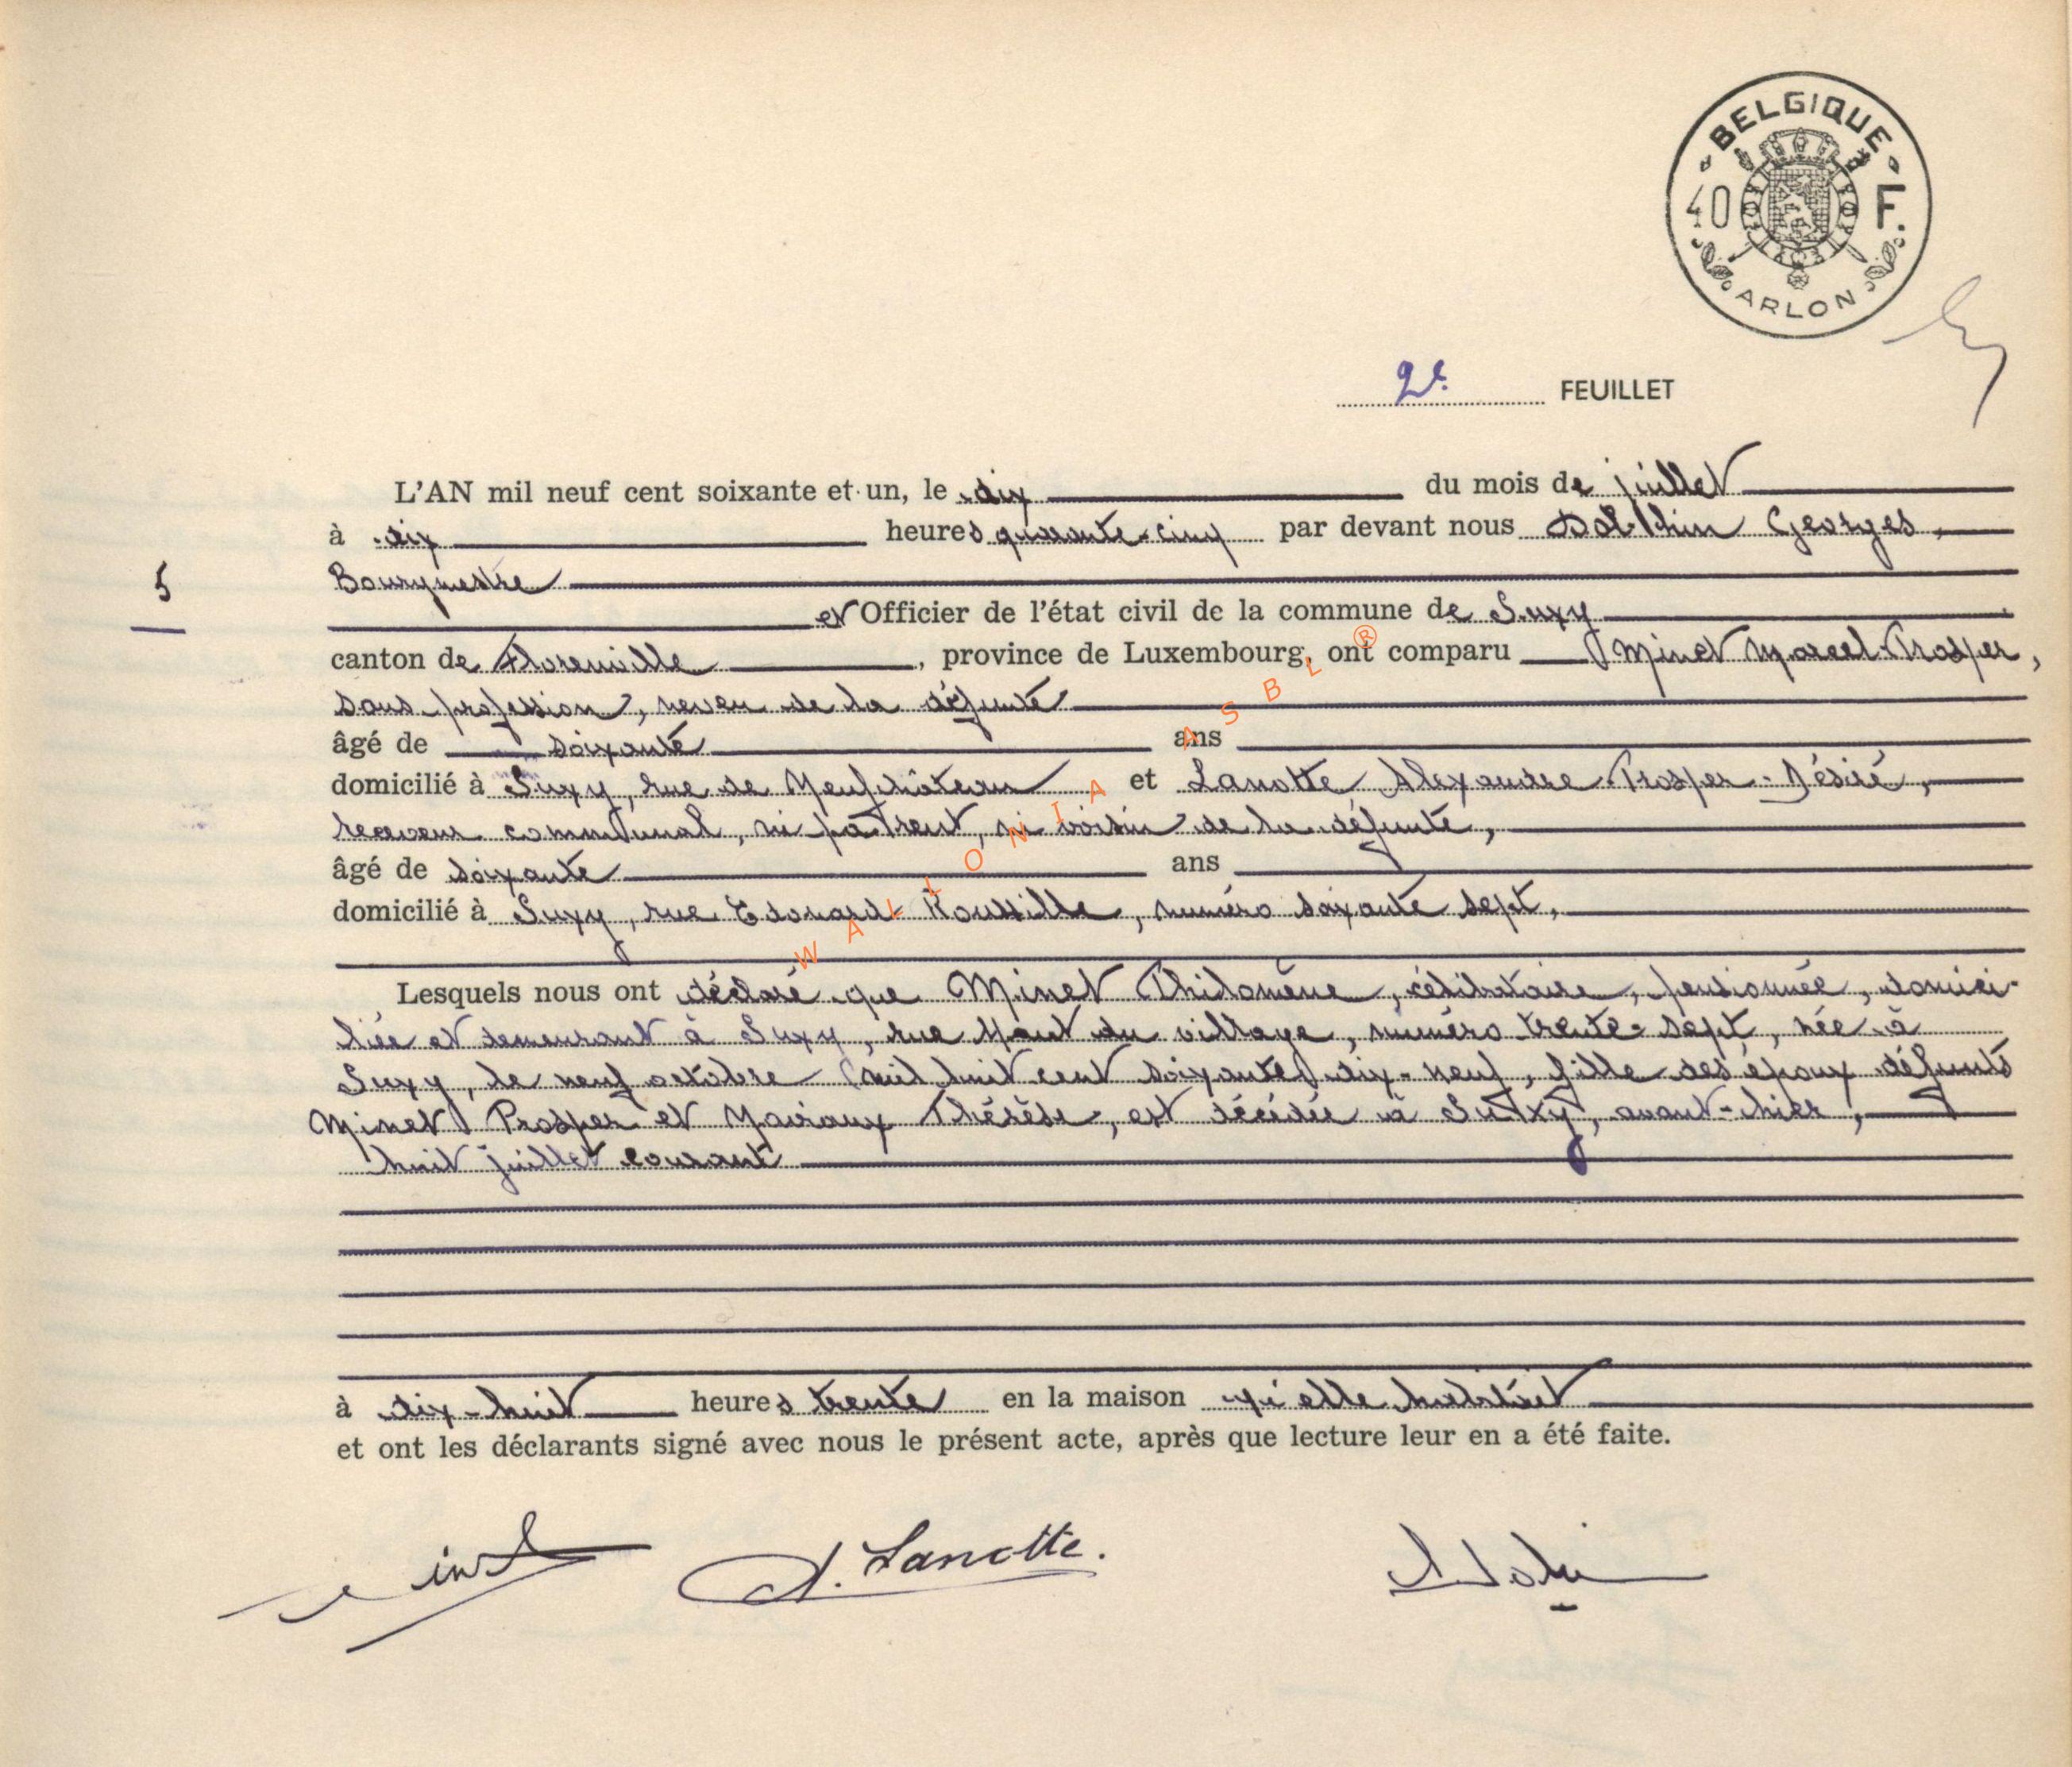 BELGIQUE
40 F.
ARLON
2e FEUILLET
L'AN mil neuf cent soixante et un, le dix du mois de juillet
à dix heures quarante-cinq par devant nous Georges,
5
Bourgmestre
et Officier de l'état civil de la commune de Suxy
canton de Florenville, province de Luxembourg, ont comparu Minet Marcel-Prosper,
sans profession, neveu de la défunte
âgé de soixante ans
domicilié à Suxy, rue de Neufchâteau et Lanotte Alexandre-Prosper-Désiré,
receveur communal, ni parent, ni voisin de la défunte,
âgé de soixante ans
domicilié à Suxy, rue Edouard Roussille, numéro soixante sept,
Lesquels nous ont déclaré que Minet Philomène, célibataire, pensionnée, domici-
liée et demeurant à Suxy, rue Haut du village, numéro trente-sept, née à
Suxy, le neuf octobre mil huit cent soixante dix-neuf, fille des époux défunts
Minet Prosper et Thérèse, est décédée à Suxy, avant-hier,
huit juillet courant
à dix-huit heures trente en la maison qu'elle habitait
et ont les déclarants signé avec nous le présent acte, après que lecture leur en a été faite.
A. Lanotte.
WALLONIA ASBL ®